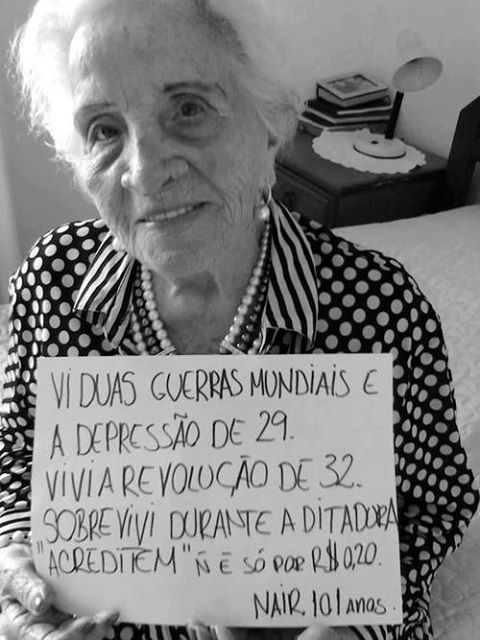 VI DUAS GUERRAS MUNDIAIS E
A DEPRESSÃO DE 29.
VIVI A REVOLUÇÃO DE 32.
SOBREVIVI DURANTE A DITADURA
"ACREDITEM" Ñ É SÓ POR R$ 0,20.
NAIR, 101 anos.